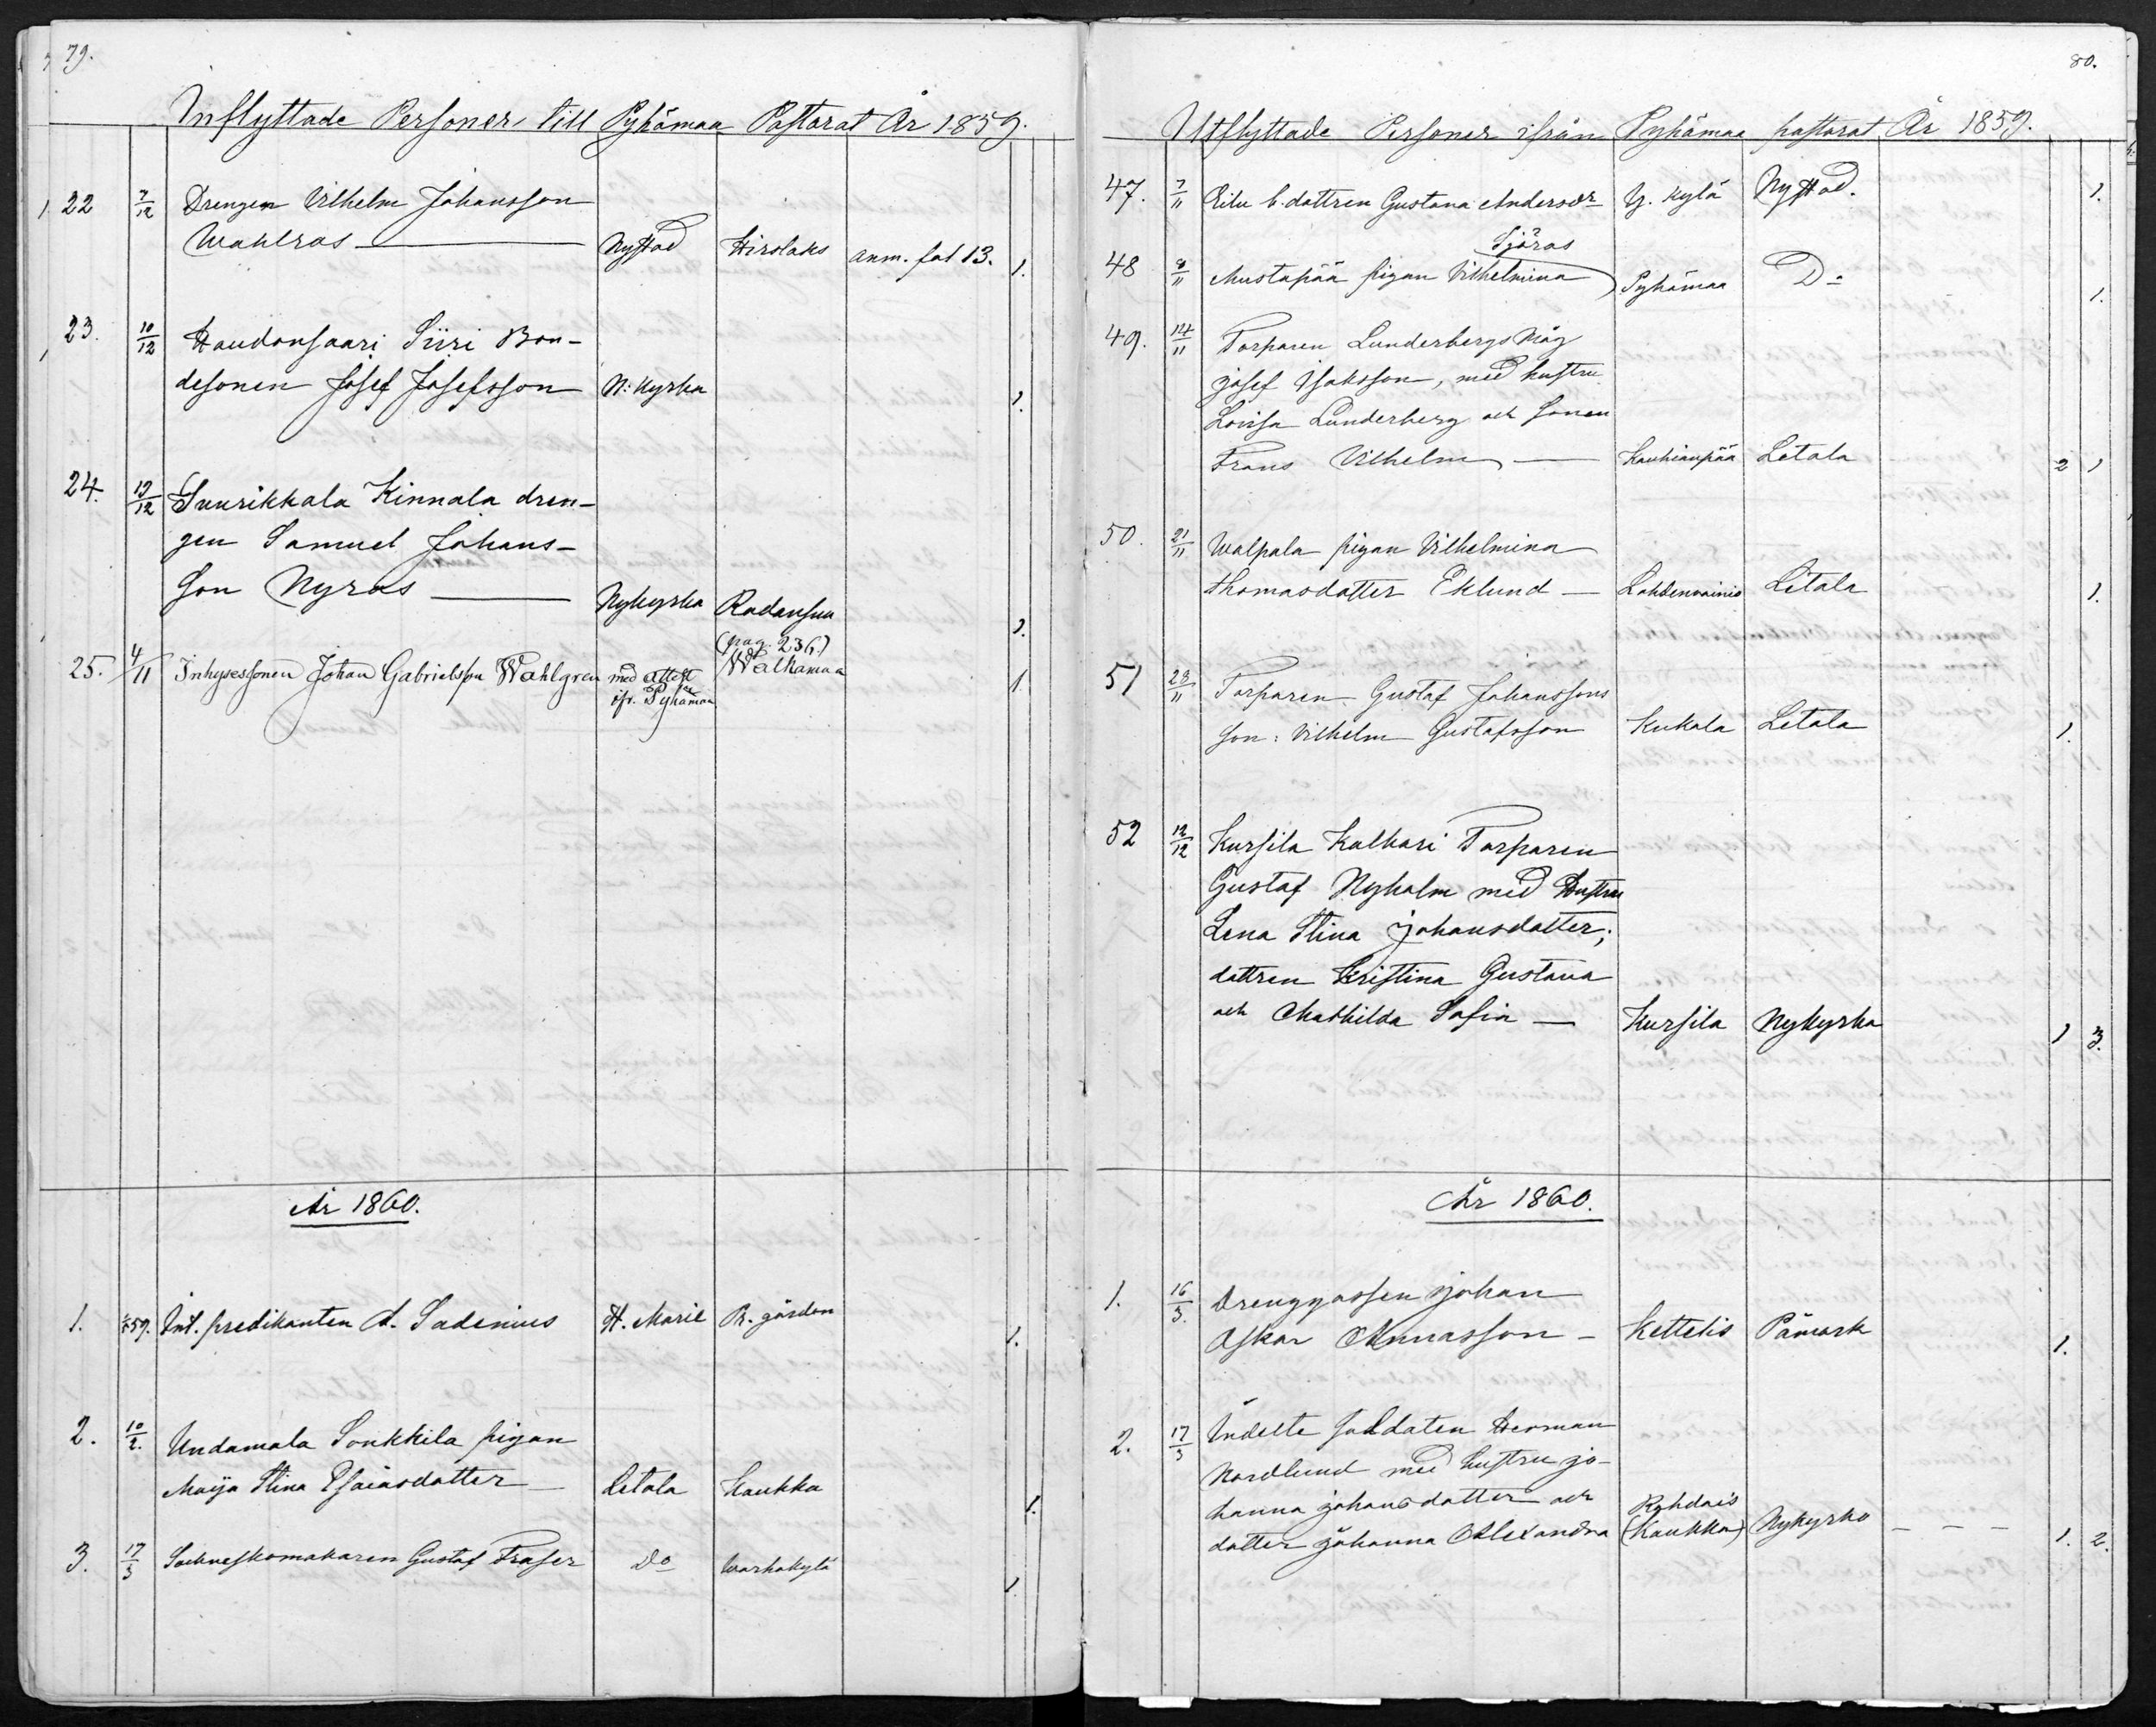 79.
Inflyttade Personer till Pyhämaa Pastorat År 1859.
22 7/12 Drengen Vilhelm Johansson
Wahlros — Nystad Hirslaks anm. fol 13. 1.
23. 10/12 Haudonsaari Siiri Bon-
desonen Josef Josefsson N: Kyrka 1.
24. 13/12 Suurikkala Kinnala dren-
gen Samuel Johans-
son Nyroos — Nykyrka Radansuu 1.
(pag. 236.)
25. 4/11 Inhysessonen Johan Gabrielsson Wahlgren med attest Walkamaa 1.
ifr. Pyhämaa
År 1860.
1. 59. Int. predikanten A. Sadenius H. Marie P. gården 1.
2. 10/2. Undamala Sonkkila pigan
Maija Stina Esaiasdotter — Letala Kaukka 1.
3. 17/3 Sockneskomakaren Gustaf Fraser Do Warhokylä 1.
80.
Utflyttade Personer ifrån Pyhämaa pastorat År 1859.
47. 7/11 Eilu b. dottren Gustava Andersdr Y. kylä Nystad. 1.
Sjöros
48 8/11 Mustapää pigan Vilhelmina Pyhämaa Do 1.
49. 14/11 Torparen Lunderbergs Måg
Josef Isaksson, med hustru
Lovisa Lunderberg och sonen
Frans Vilhelm — Kauhianpää Letala 2 1
50. 21/11 Walpala pigan Vilhelmina
Thomasdotter Eklund — Lahdenvainio Letala 1.
51 28/11 Torparen Gustaf Johanssons
son: Vilhelm Gustafsson Kukala Letala 1.
52 12/12 Kursila Kalkari Torparen
Gustaf Nyholm med Hustru
Lena Stina Johansdotter;
dottren Kristina Gustava
och Mathilda Sofia — Kursila Nykyrka 1 3.
År 1860.
1. 16/3. Drenggossen Johan
Oskar Annasson — Kettelis Påmark 1.
2. 17/3 Indelte soldaten Herman
Nordlund med hustru Jo-
hanna Johansdotter och Rohdais
dotter Johanna Alexandra (Kaukka) Nykyrko — — — 1. 2.